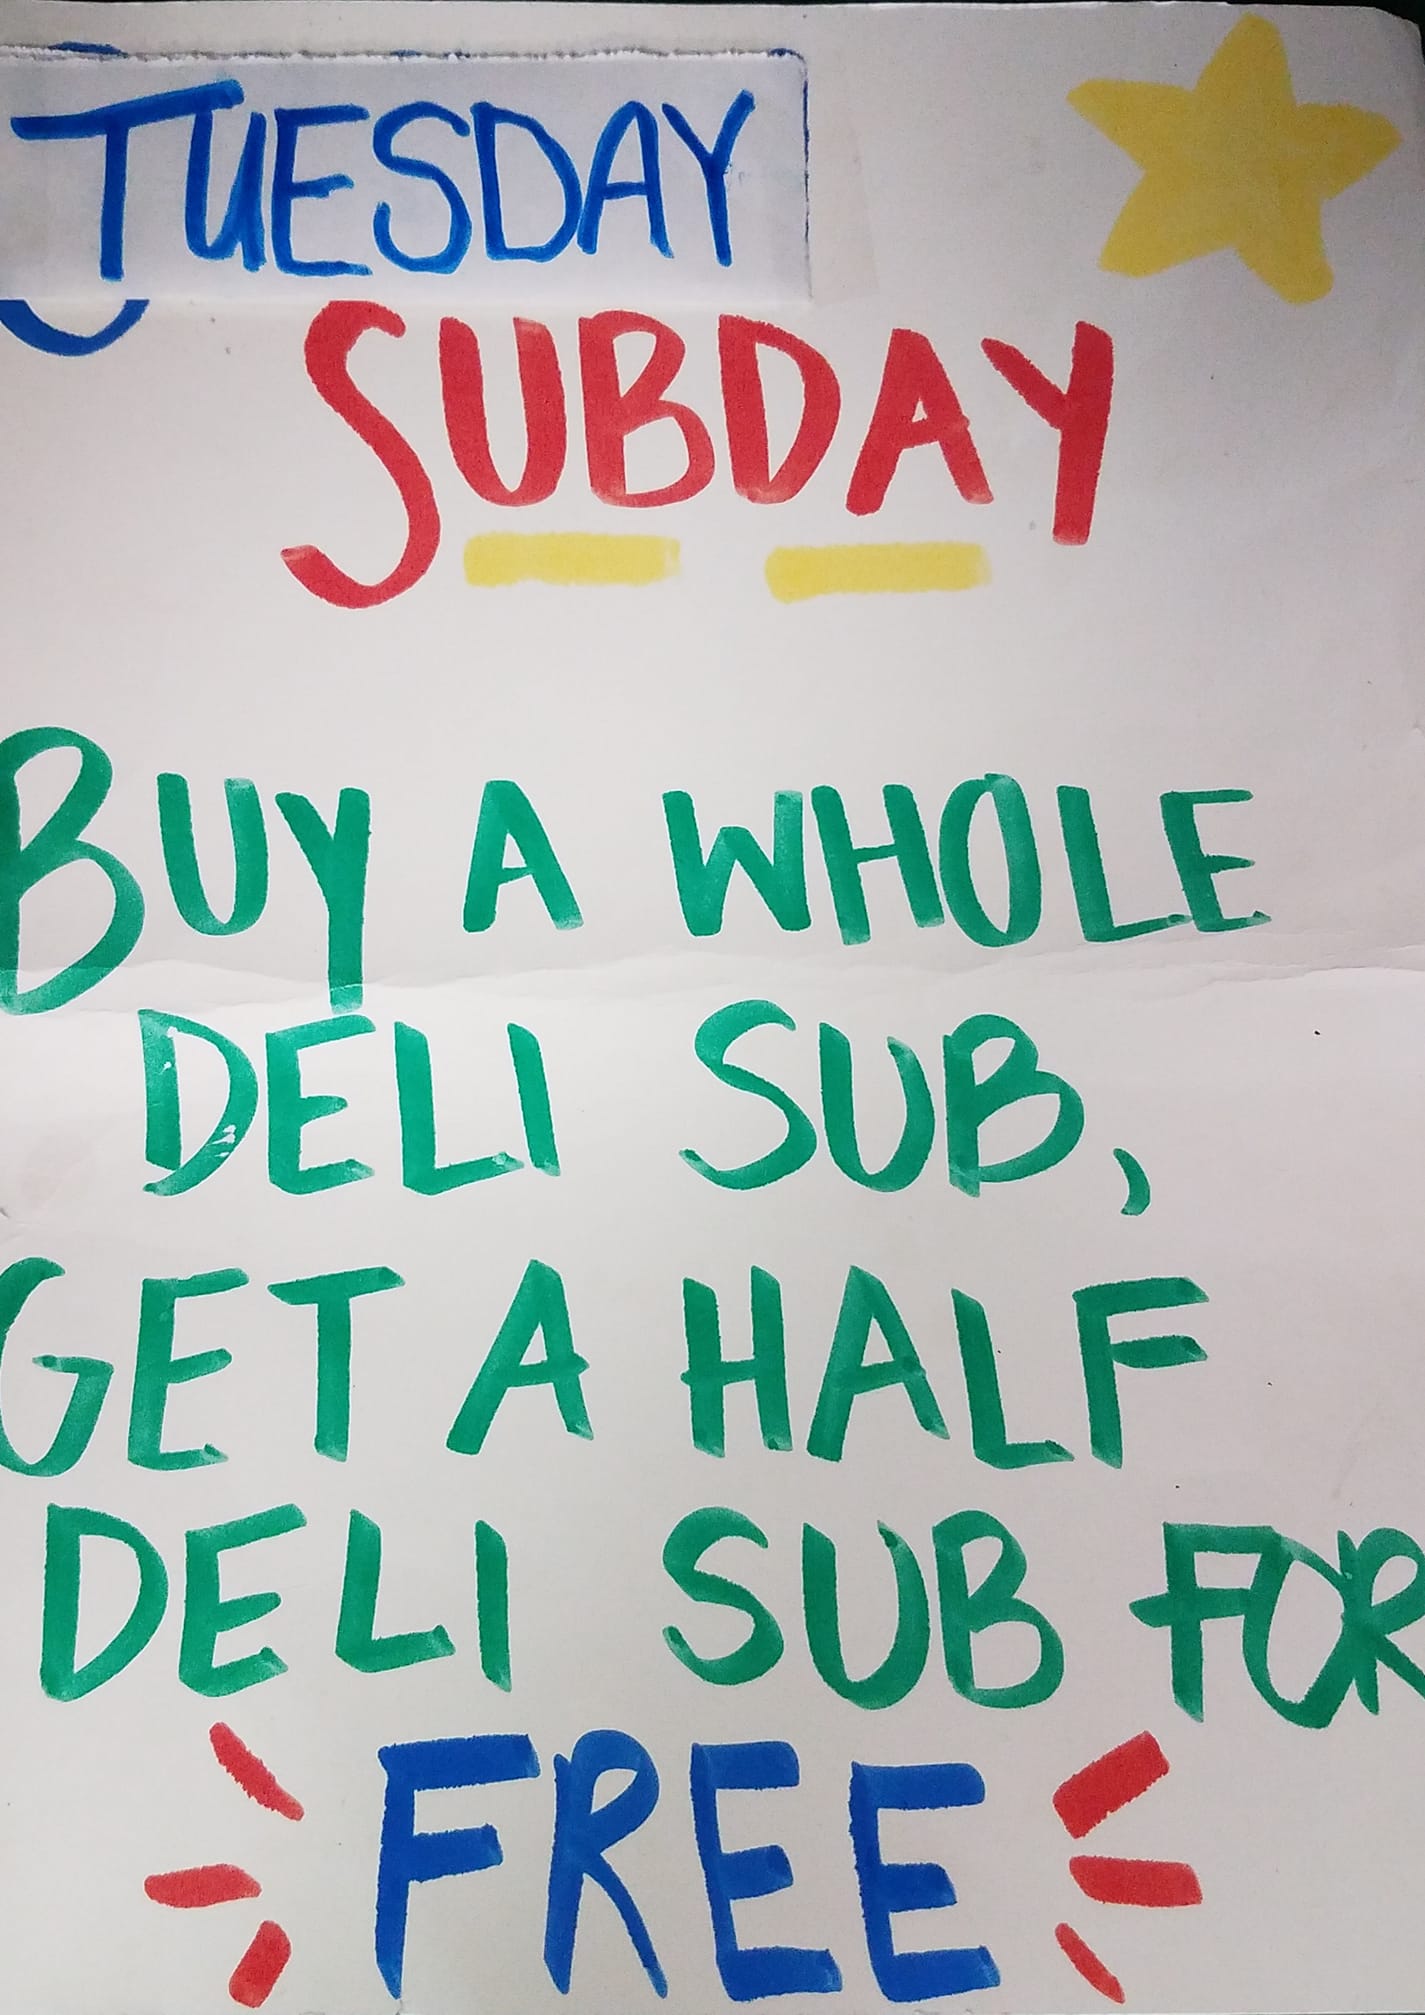 TUESDAY
SUBDAY
BUY A WHOLE
DELI SUB,
GET A HALF
DELI SUB FOR
FREE